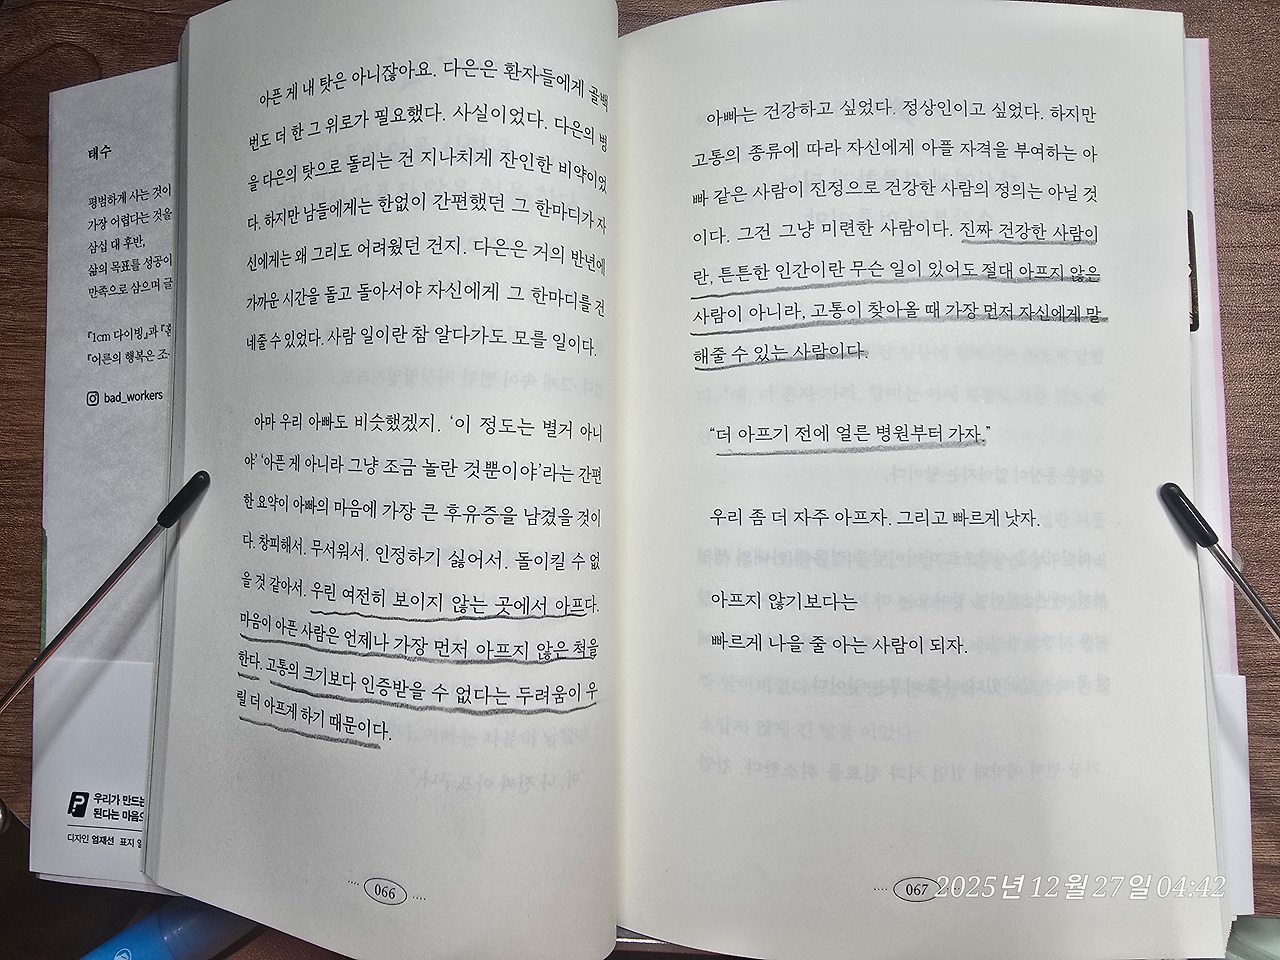 태수
평범하게 사는 것이
가장 어렵다는 것을
삼십 대 후반,
삶의 목표를 성공이
만족으로 삼으며 글
『1cm 다이빙』과 『홈
『어른의 행복은 조
bad_workers
우리가 만드는
된다는 마음으
디자인 엄재선 표지 일
아픈 게 내 탓은 아니잖아요. 다은은 환자들에게 골백
번도 더 한 그 위로가 필요했다. 사실이었다. 다은의 병
을 다은의 탓으로 돌리는 건 지나치게 잔인한 비약이었
다. 하지만 남들에게는 한없이 간편했던 그 한마디가 자
신에게는 왜 그리도 어려웠던 건지. 다은은 거의 반년에
가까운 시간을 돌고 돌아서야 자신에게 그 한마디를 건
네줄 수 있었다. 사람 일이란 참 알다가도 모를 일이다.
아마 우리 아빠도 비슷했겠지. ‘이 정도는 별거 아니
야’ ‘아픈 게 아니라 그냥 조금 놀란 것뿐이야’라는 간편
한 요약이 아빠의 마음에 가장 큰 후유증을 남겼을 것이
다. 창피해서. 무서워서. 인정하기 싫어서. 돌이킬 수 없
을 것 같아서. 우린 여전히 보이지 않는 곳에서 아프다.
마음이 아픈 사람은 언제나 가장 먼저 아프지 않은 척을
한다. 고통의 크기보다 인증받을 수 없다는 두려움이 우
릴 더 아프게 하기 때문이다.
066
아빠는 건강하고 싶었다. 정상인이고 싶었다. 하지만
고통의 종류에 따라 자신에게 아플 자격을 부여하는 아
빠 같은 사람이 진정으로 건강한 사람의 정의는 아닐 것
이다. 그건 그냥 미련한 사람이다. 진짜 건강한 사람이
란, 튼튼한 인간이란 무슨 일이 있어도 절대 아프지 않은
사람이 아니라, 고통이 찾아올 때 가장 먼저 자신에게 말
해줄 수 있는 사람이다.
“더 아프기 전에 얼른 병원부터 가자.”
우리 좀 더 자주 아프자. 그리고 빠르게 낫자.
아프지 않기보다는
빠르게 나을 줄 아는 사람이 되자.
067
2025년 12월 27일 04:42